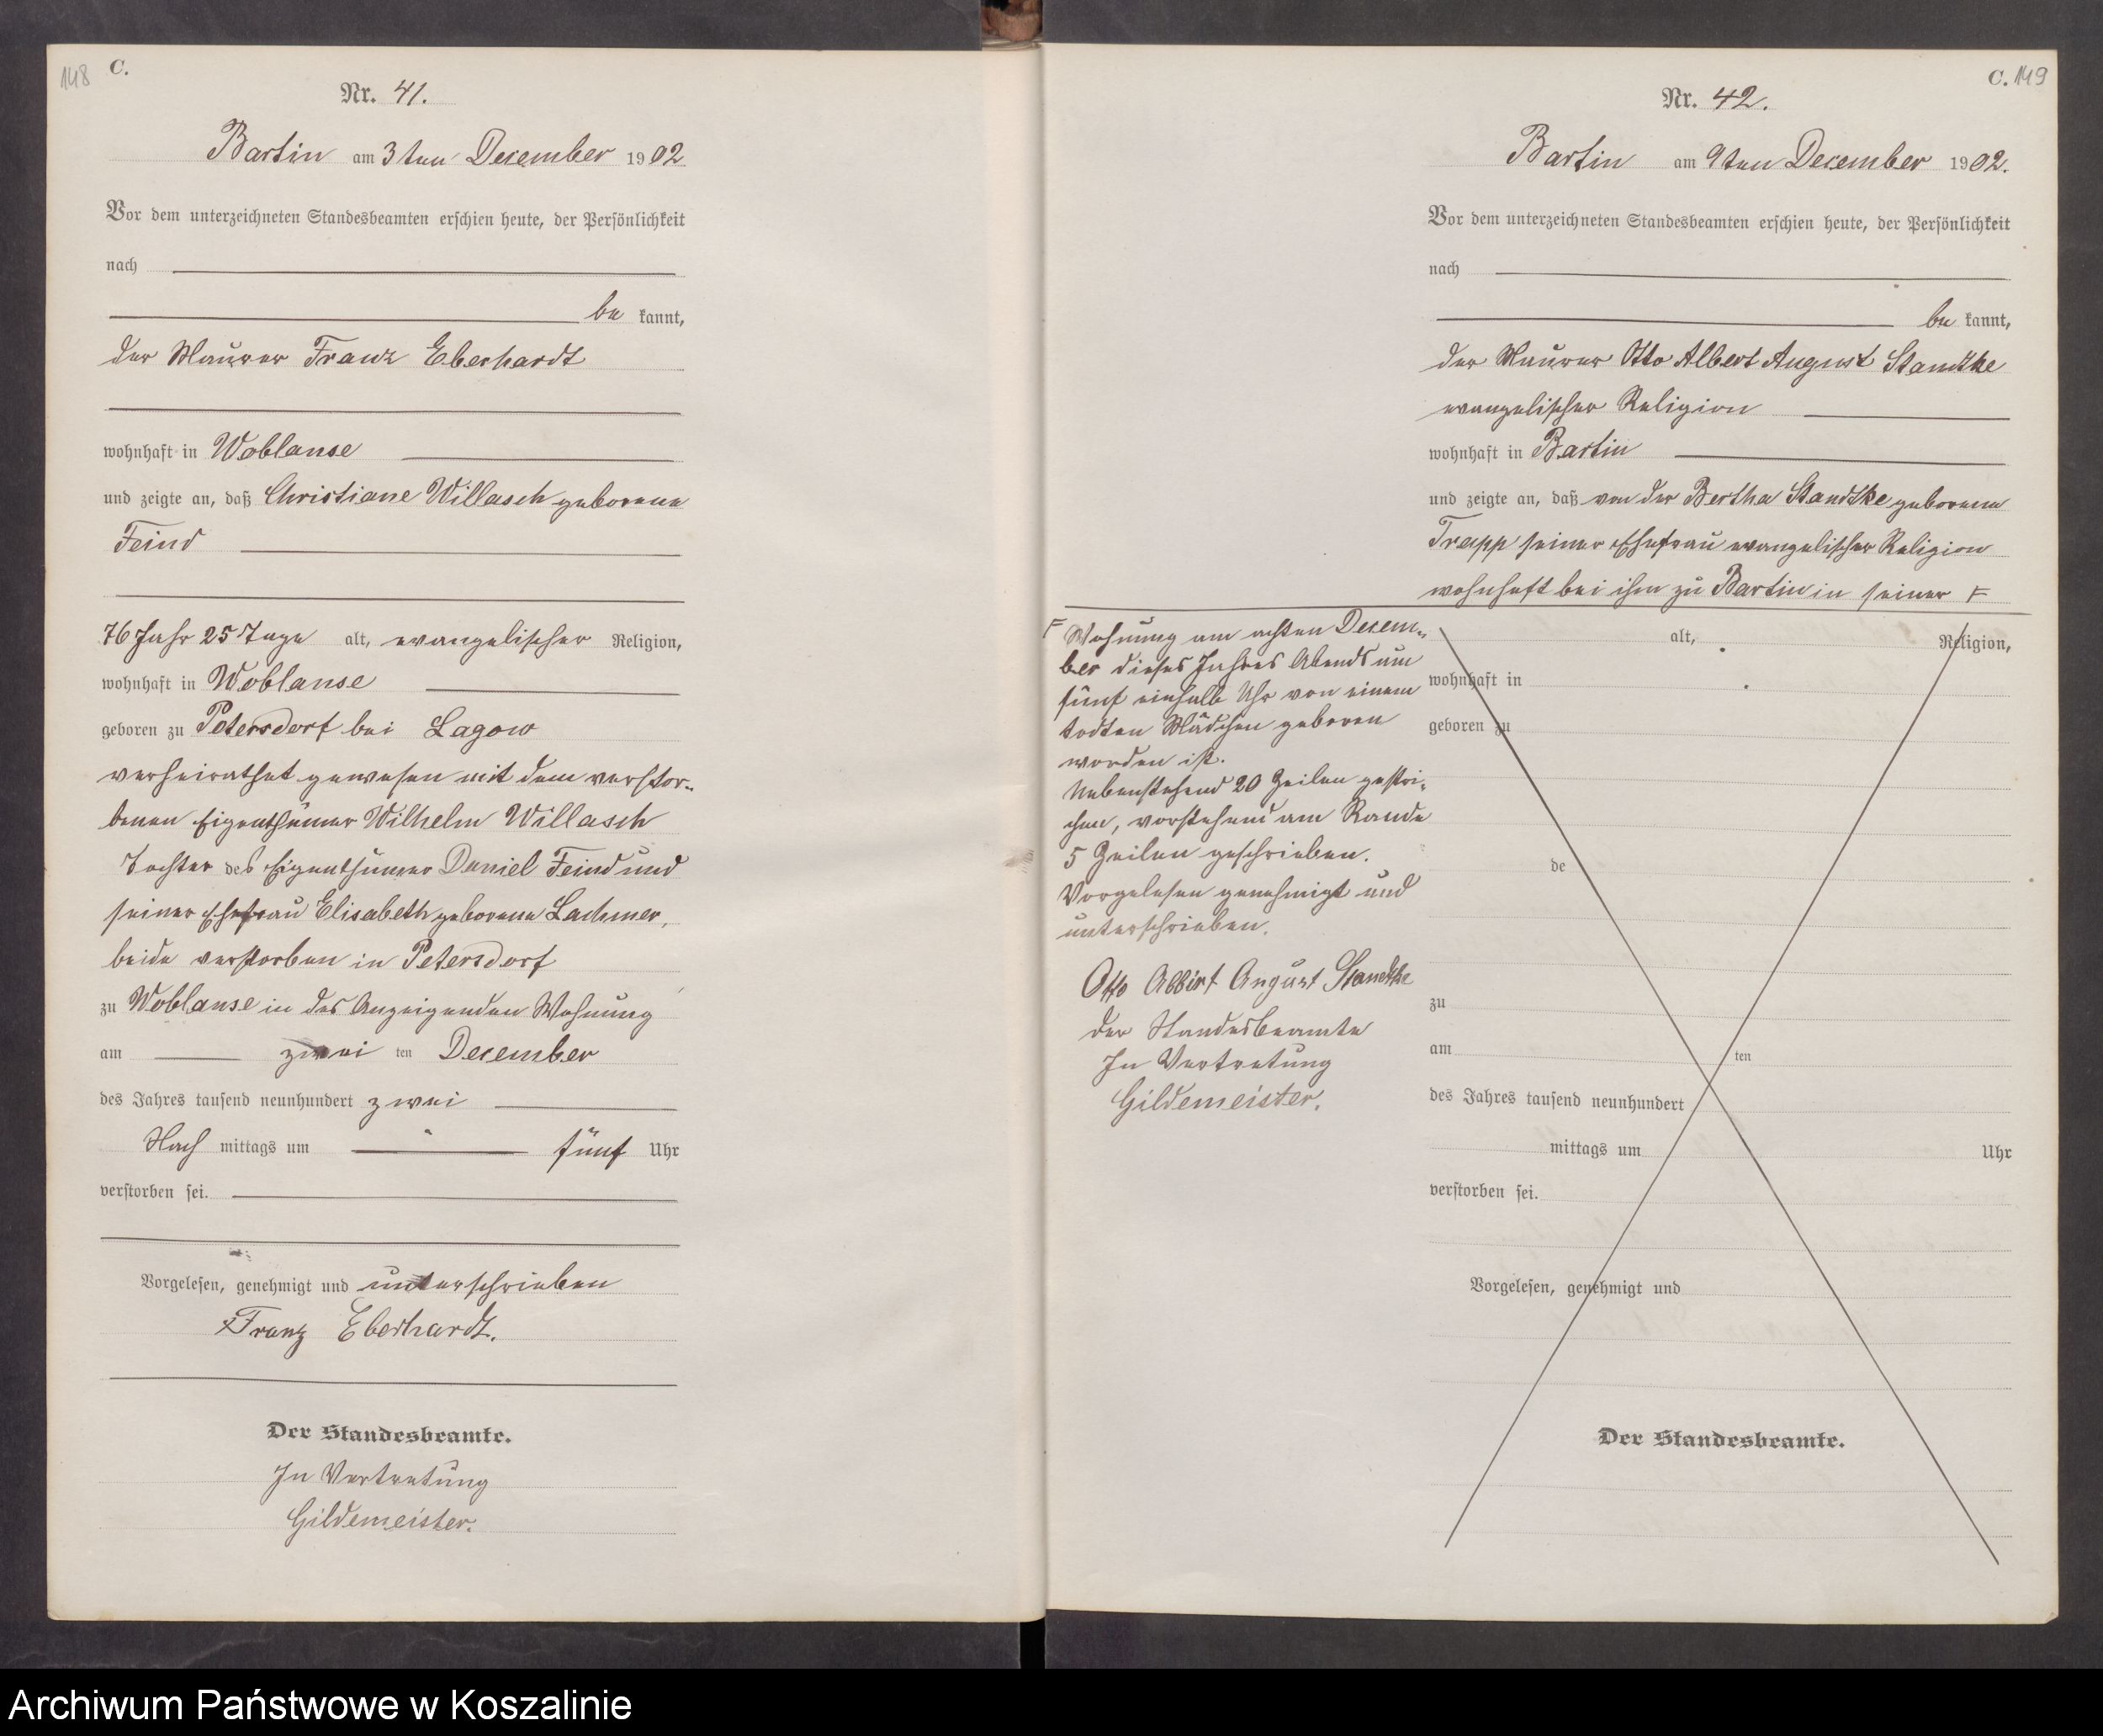 148 C.
Nr. 41.
Bartin am 3ten December 1902
Vor dem unterzeichneten Standesbeamten erschien heute, der Persönlichkeit
nach
be kannt,
der Maurer Franz Eberhardt
wohnhaft in Woblanse
und zeigte an, daß Christiane Villasch geborene
Feind
76 Jahr 25 Tage alt, evangelischer Religion,
wohnhaft in Woblanse
geboren zu Petersdorf bei Lagow
verheirathet gewesen mit dem verstor-
benen Eigenthümer Wilhelm Villasch
Tochter des Eigenthümer Daniel Feind und
seiner Ehefrau Elisabeth geborene Lachmer,
beide verstorben in Petersdorf
zu Woblanse in des Anzeigenden Wohnung
am zwei ten December
des Jahres tausend neunhundert zwei
Nach mittags um fünf Uhr
verstorben sei.
Vorgelesen, genehmigt und unterschrieben
Franz Eberhardt.
Der Standesbeamte.
In Vertretung
Gildemeister.
C. 149
Nr. 42.
Bartin am 9ten December 1902.
Vor dem unterzeichneten Standesbeamten erschien heute, der Persönlichkeit
nach
be kannt,
der Maurer Otto Albert August Standtke
evangelischer Religion
wohnhaft in Bartin
und zeigte an, daß von der Bertha Standtke geborene
Trapp seiner Ehefrau evangelischer Religion
wohnhaft bei ihm zu Bartin in seiner F
F Wohnung am achten Decem-
ber dieses Jahres Abends um
fünf einhalb Uhr von einem
todten Mädchen geboren
worden ist.
Nebenstehend 20 Zeilen gestri-
chen, vorstehend am Rande
5 Zeilen geschrieben.
Vorgelesen genehmigt und
unterschrieben.
Otto Albert August Standtke
Der Standesbeamte
In Vertretung
Gildemeister.
alt, Religion,
wohnhaft in
geboren zu
de
zu
am ten
des Jahres tausend neunhundert
mittags um Uhr
verstorben sei.
Vorgelesen, genehmigt und
Der Standesbeamte.
Archiwum Państwowe w Koszalinie